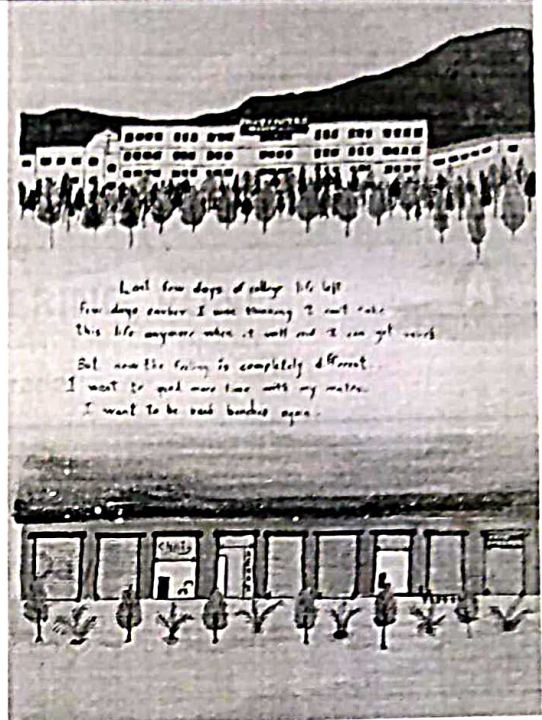 Last few days of college life left
Few days earlier I was thinking I can't take
this life anymore when it will end I can get
But now the feeling is completely different..
I want to spend more time with my mates.
I want to be back bencher again.
Chats